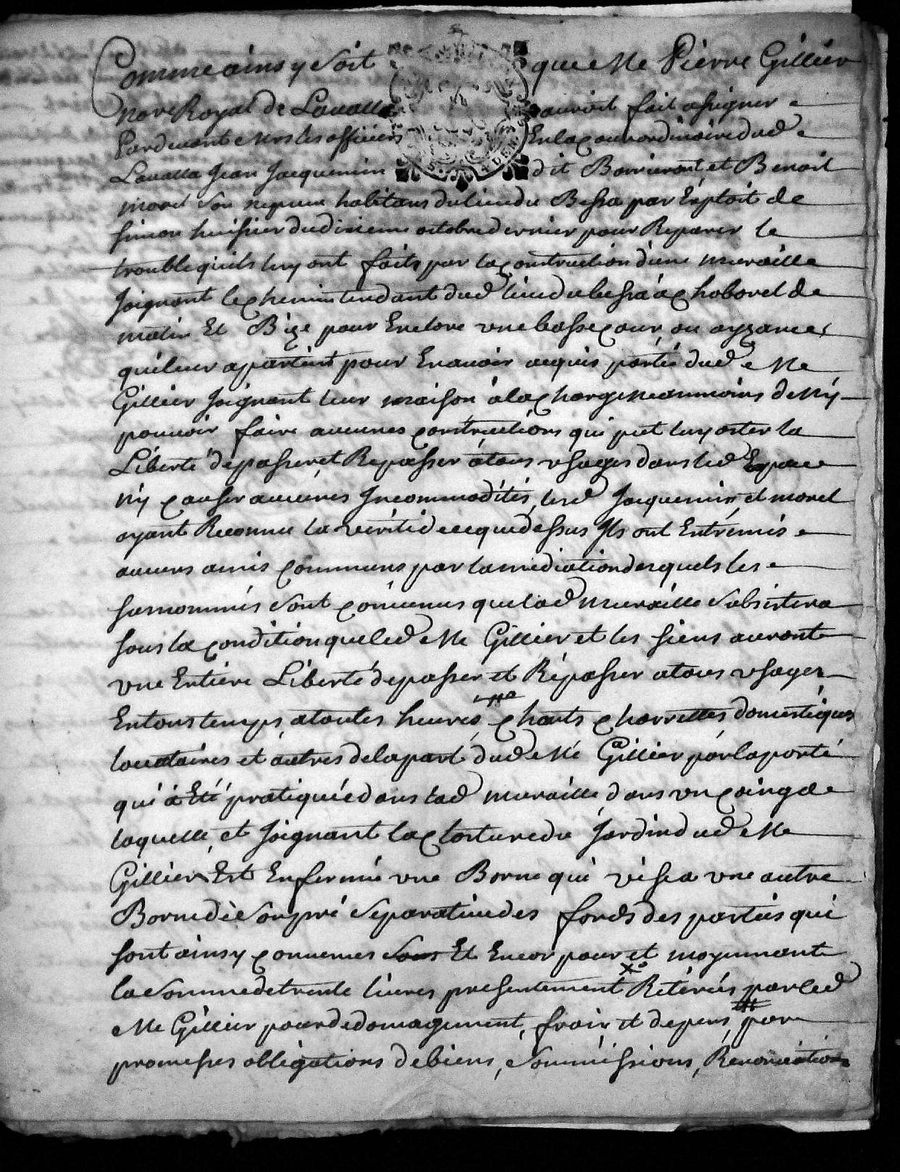 Comme ainsy soit que Me Pierre Gillier
nore Royal de Lavalla auroit fait assigner
Pardevant Mrs les officiers En la cour ordinaire dud
Lavalla Jean Jacquemin dit Barriront et Benoit
morel son nepueu habitans du lieu du Bessa par Exploit de
simon huissier du dixieme octobre dernier pour Reparer le
trouble quils luy ont faits par la construction d'une muraille
Joignant le chemin tendant dud lieu du bessa a Chaboret de
matin Et Bize pour Enclore une basse cour ou ayzances
qui leur apartient pour En auoir acquis partie dud Me
Gillier Joignant leur maison a la charge neanmoins de n'y
pouuoir faire aucunes constructions qui put luy oster la
Liberté de passer et Repasser a tous usages dans led Espace
n'y causer aucunes Incommodités, lesd Jacquemin et morel
ayant Reconnu la verité de ce que dessus Ils ont Entremis
aucuns amis communs par la mediation desquels les
susnommés sont conuenus que lad muraille subsistera
sous la condition que led Me Gillier et les siens auront
une Entiere Liberté de passer et Repasser a tous usages
En tous temps a toutes heures chards charrettes domestiques
locataires et autres de la part dud Me Gillier par la porte
qui a Eté pratiquée dans lad muraille dans un coing de
laquelle, et Joignant la cloture du Jardin dud Me
Gillier Est Enfermée une Borne qui visea une autre
Borne de son pré separatiue des fonds des parties qui
sont ainsy conuenues Et Encor pour et moyennant
la somme de trente liures presentement Retirées par led
Me Gillier pour dedomagement, frais et depens, par
promesses obligations de biens, soummissions, Renonciations